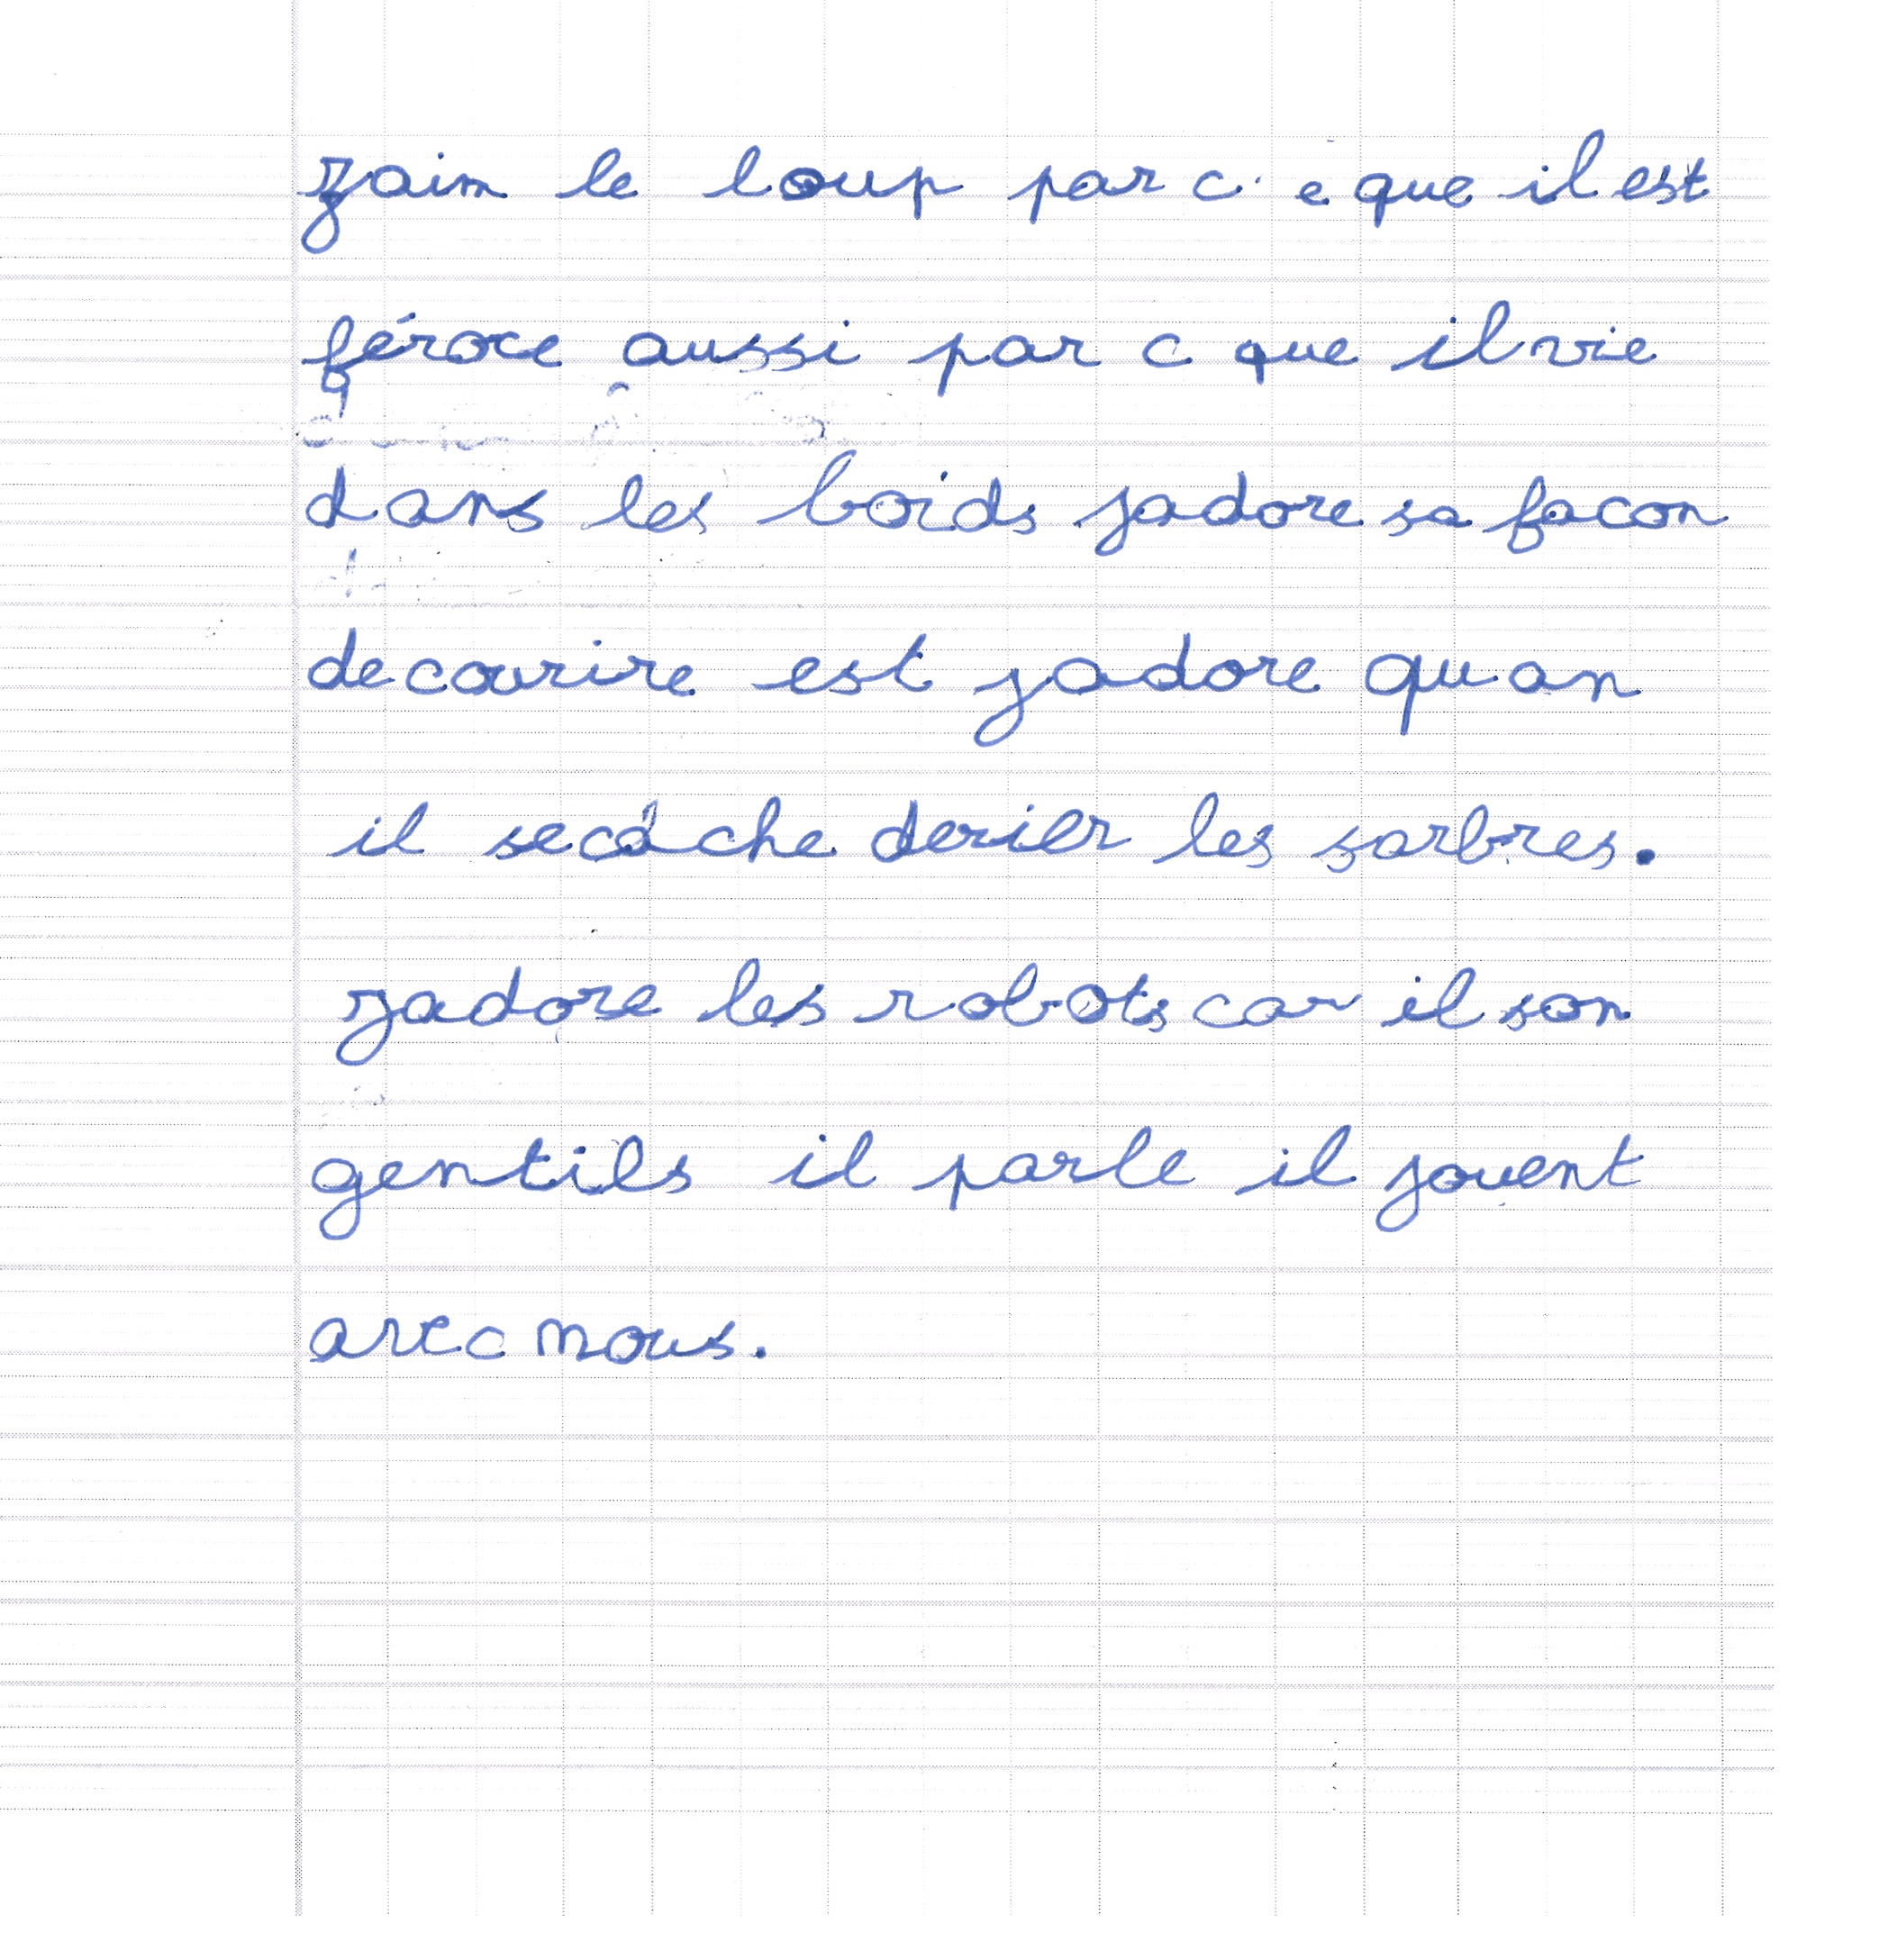 jaim le loup par c e que il est
féroce aussi par c que il vie
dans les boids jadore sa facon
de courire est jadore quan
il secache derier les sarbres.
jadore les robots car il son
gentils il parle il jouent
avec nous.